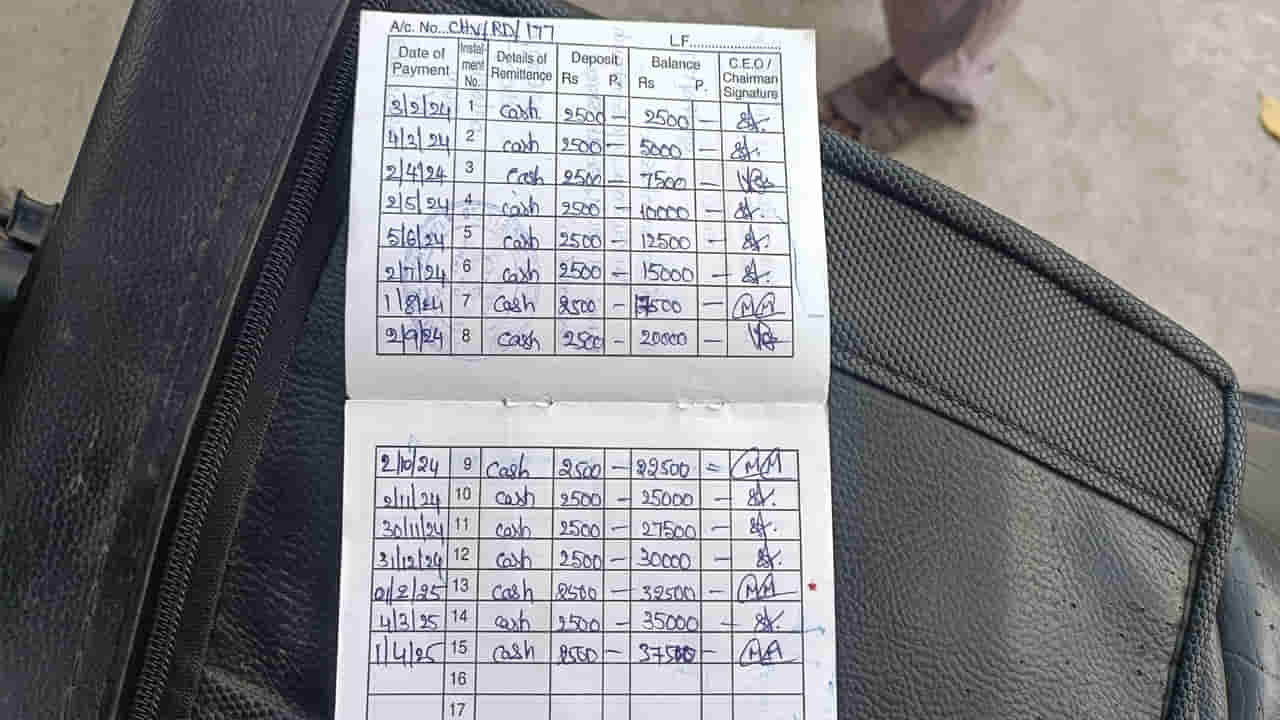 A/c. No...CHV/RD/177
LF.......................
Date of Payment Instal-ment No. Details of Remittance Deposit Rs P. Balance Rs P. C.E.O / Chairman Signature
2/2/24 1 cash 2500 — 2500 —
4/3/24 2 cash 2500 — 5000 —
2/4/24 3 cash 2500 — 7500 —
2/5/24 4 cash 2500 — 10000 —
5/6/24 5 cash 2500 — 12500 —
2/7/24 6 cash 2500 — 15000 —
1/8/24 7 cash 2500 — 17500 —
2/9/24 8 cash 2500 — 20000 —
2/10/24 9 cash 2500 — 22500 =
2/11/24 10 cash 2500 — 25000 —
30/11/24 11 cash 2500 — 27500 —
31/12/24 12 cash 2500 — 30000 —
01/2/25 13 cash 2500 — 32500 —
4/3/25 14 cash 2500 — 35000 —
1/4/25 15 cash 2500 — 37500 —
16
17